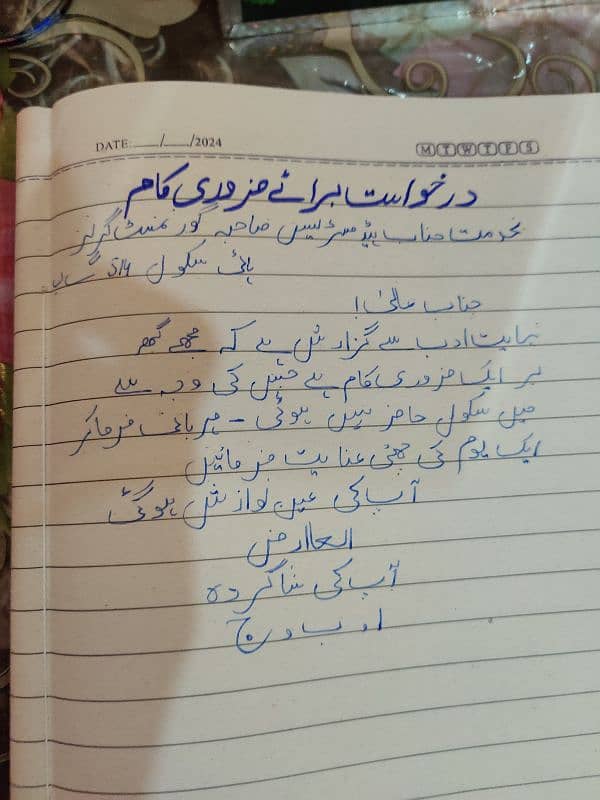 DATE:___/___/2024
M T W T F S
درخواست برائے ضروری کام
بخدمت جناب ہیڈ مسٹریس صاحبہ گورنمنٹ گرلز
ہائی سکول
جناب عالیٰ!
نہایت ادب سے گزارش ہے کہ مجھے گھر
پر ایک ضروری کام ہے جس کی وجہ سے
میں سکول حاضر نہیں ہوئی - مہربانی فرما کر
ایک یوم کی چھٹی عنایت فرمائیں
آپ کی عین نوازش ہوگی
العارض
آپ کی شاگردہ
ا ۔ ب ۔ ج